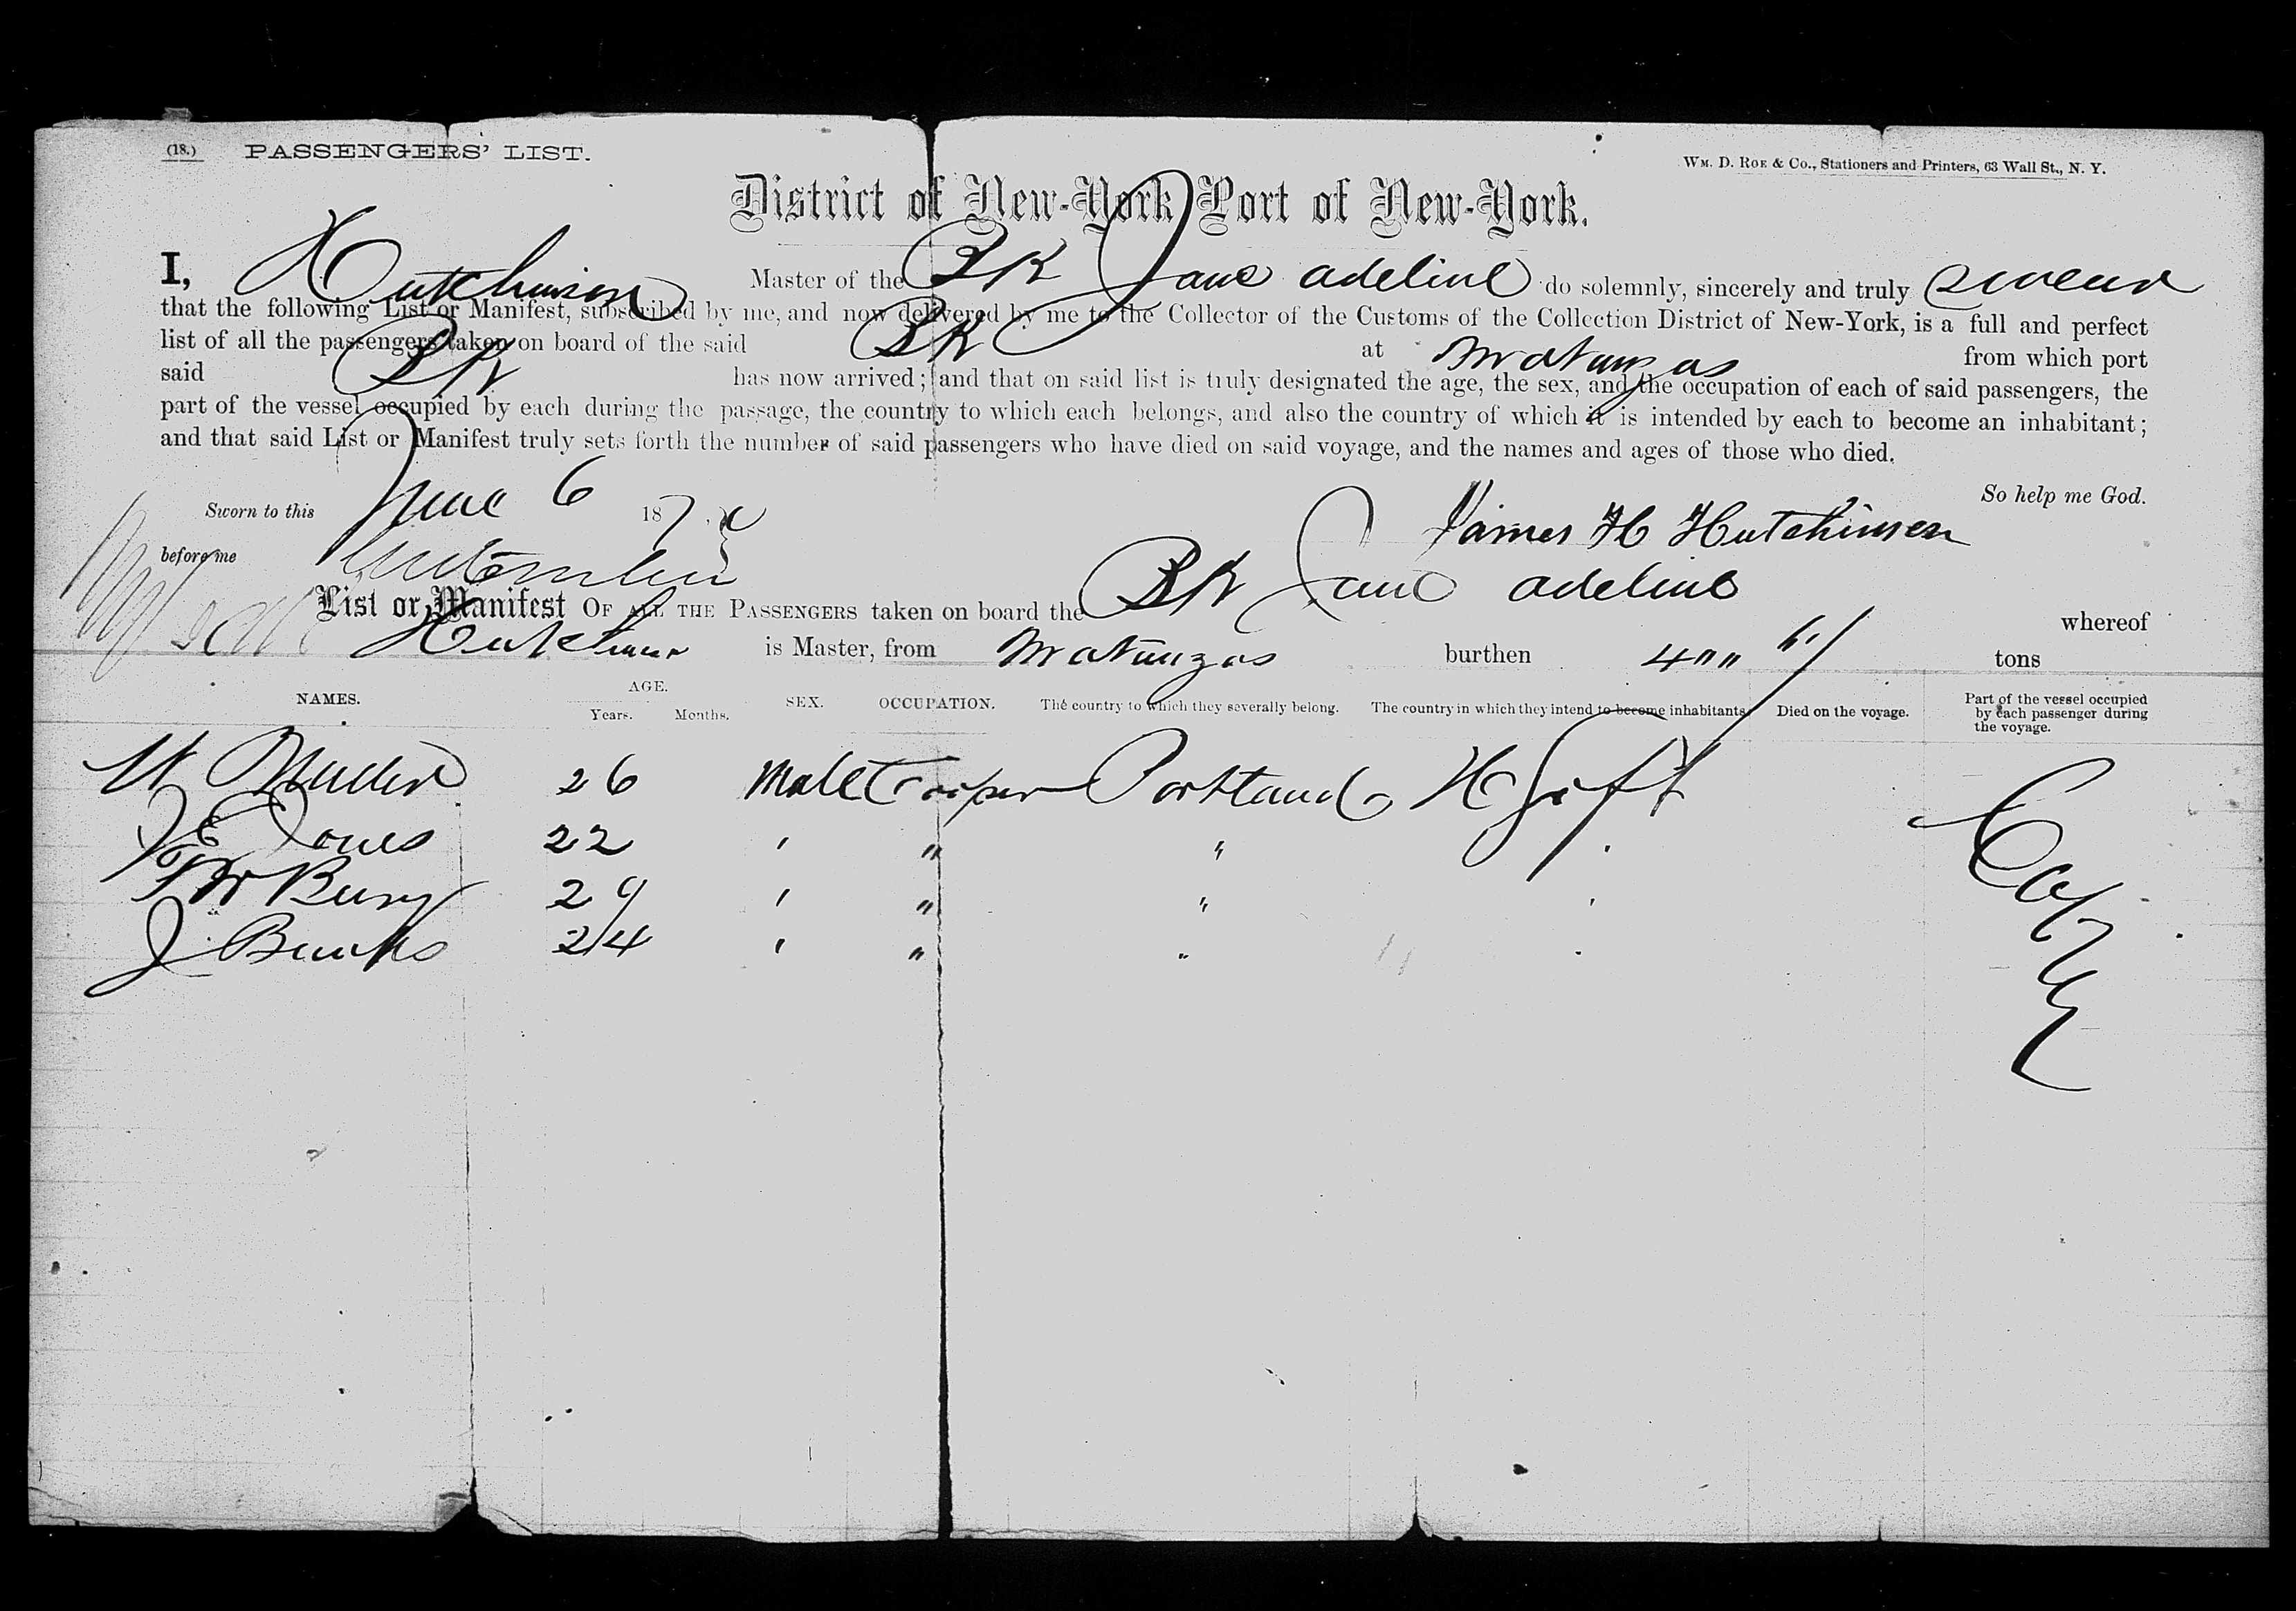 (18.) PASSENGERS' LIST.
WM. D. ROE & CO., Stationers and Printers, 63 Wall St., N. Y.
District of New-York Port of New-York.
I, Hutchinson Master of the BK Jane Adeline do solemnly, sincerely and truly swear
that the following List or Manifest, subscribed by me, and now delivered by me to the Collector of the Customs of the Collection District of New-York, is a full and perfect
list of all the passengers taken on board of the said BK at Matanzas from which port
said BK has now arrived; and that on said list is truly designated the age, the sex, and the occupation of each of said passengers, the
part of the vessel occupied by each during the passage, the country to which each belongs, and also the country of which it is intended by each to become an inhabitant;
and that said List or Manifest truly sets forth the number of said passengers who have died on said voyage, and the names and ages of those who died.
So help me God.
Sworn to this June 6 187
James H Hutchinson
before me
List or Manifest OF ALL THE PASSENGERS taken on board the BK Jane Adeline whereof
Hutchinson is Master, from Matanzas burthen 4"" tons
NAMES. AGE. Years. Months. SEX. OCCUPATION. The country to which they severally belong. The country in which they intend to become inhabitants. Died on the voyage. Part of the vessel occupied by each passenger during the voyage.
26 Male Cooper Portland
E Jones 22 " " "
Bury 29 " " "
J Banks 24 " " "